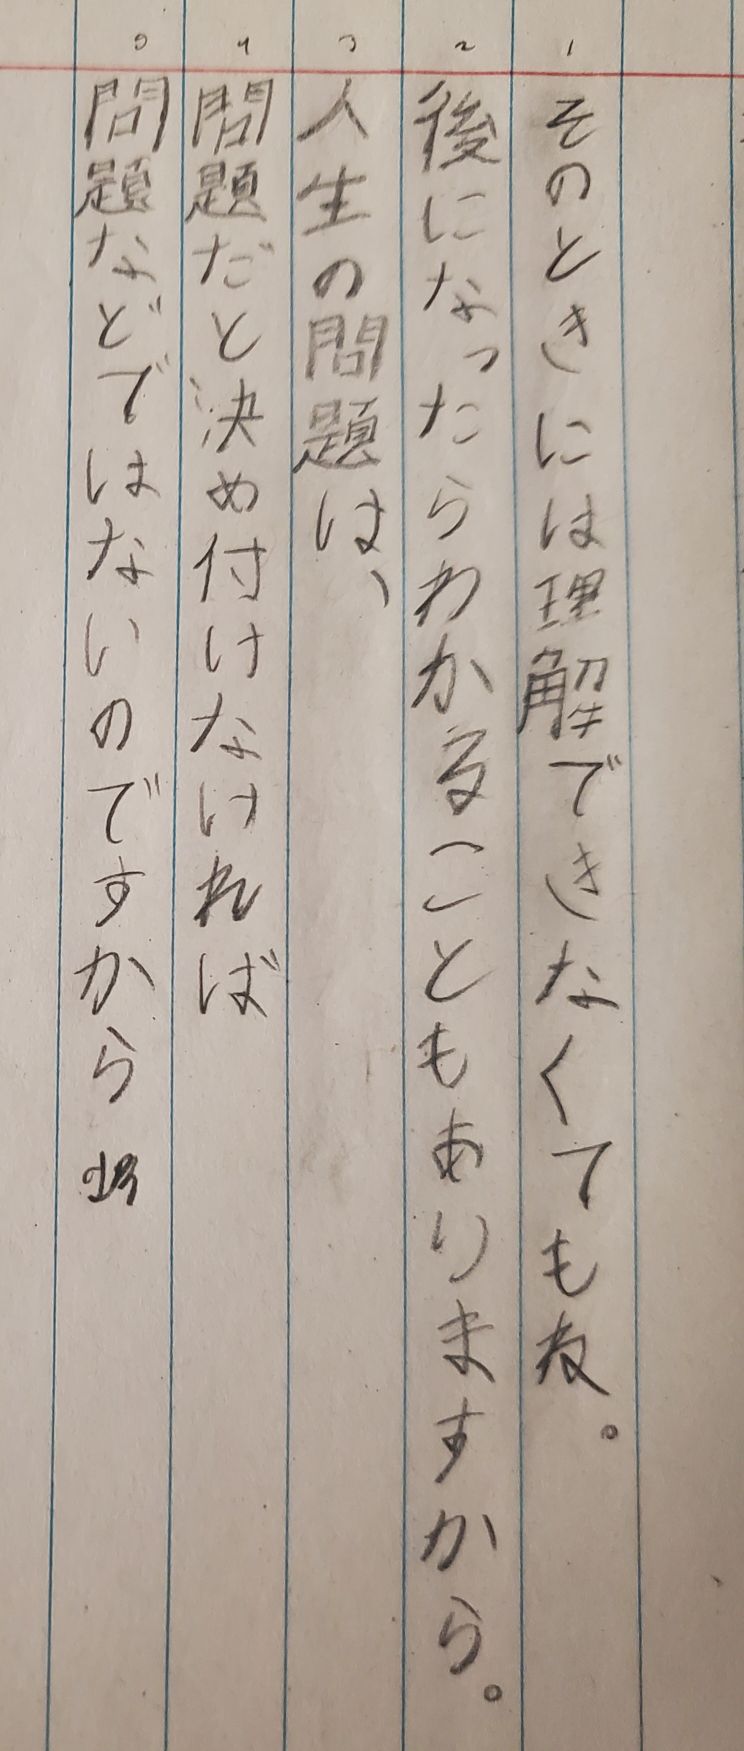 1
そのときには理解できなくてもね。
2
後になったらわかることもありますから。
3
人生の問題は、
4
問題だと決め付けなければ
5
問題などではないのですから